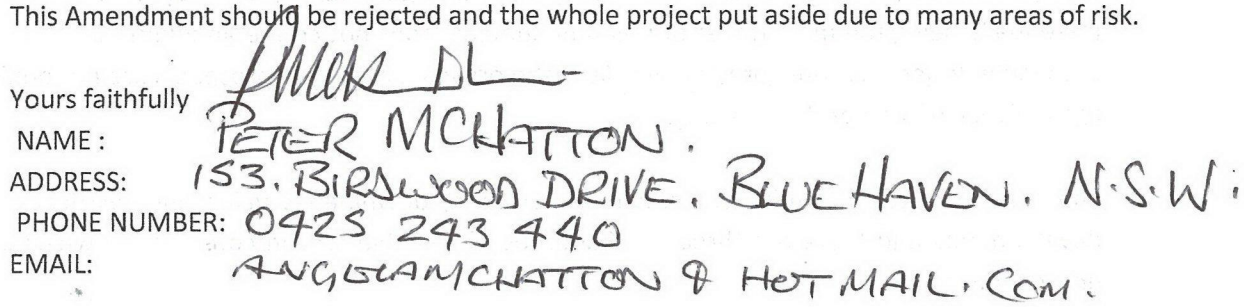 This Amendment should be rejected and the whole project put aside due to many areas of risk.
Yours faithfully
NAME : PETER MCHATTON.
ADDRESS: 153. BIRDWOOD DRIVE. BLUE HAVEN. N.S.W.
PHONE NUMBER: 0425 243 440
EMAIL: ANGELAMCHATTON @ HOTMAIL. COM.